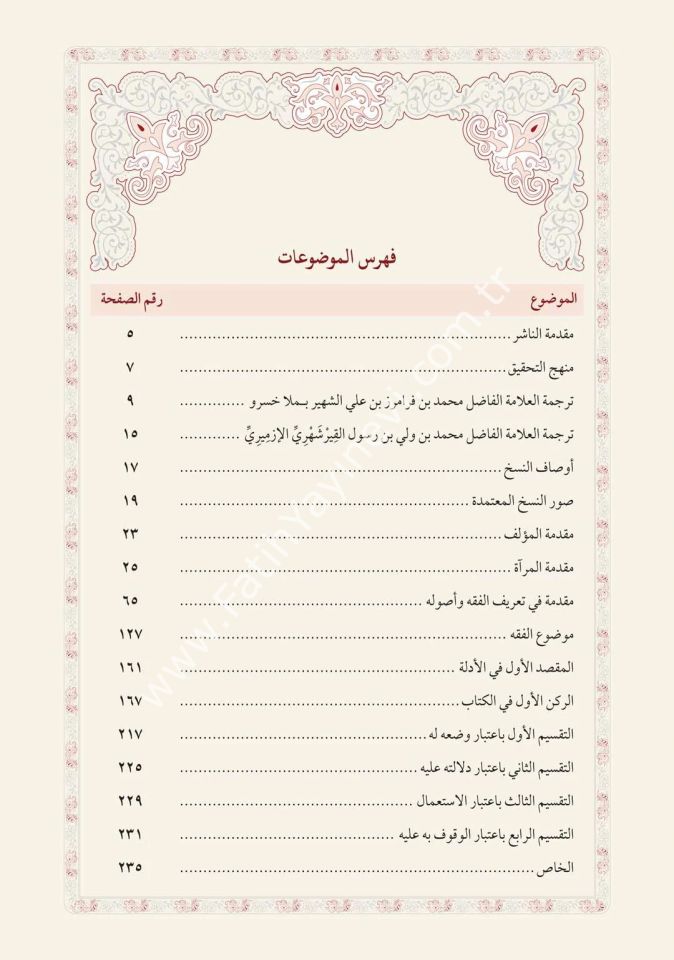 فهرس الموضوعات
الموضوع رقم الصفحة
مقدمة الناشر ٥
منهج التحقيق ٧
ترجمة العلامة الفاضل محمد بن فرامرز بن علي الشهير بـملا خسرو ٩
ترجمة العلامة الفاضل محمد بن ولي بن رسول القِيرْشَهْرِيِّ الإزمِيرِيِّ ١٥
أوصاف النسخ ١٧
صور النسخ المعتمدة ١٩
مقدمة المؤلف ٢٣
مقدمة المرآة ٢٥
مقدمة في تعريف الفقه وأصوله ٦٥
موضوع الفقه ١٢٧
المقصد الأول في الأدلة ١٦١
الركن الأول في الكتاب ١٦٧
التقسيم الأول باعتبار وضعه له ٢١٧
التقسيم الثاني باعتبار دلالته عليه ٢٢٥
التقسيم الثالث باعتبار الاستعمال ٢٢٩
التقسيم الرابع باعتبار الوقوف به عليه ٢٣١
الخاص ٢٣٥
www.FatihYayinevi.com.tr